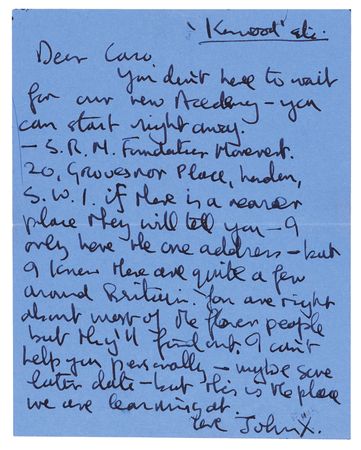 'Kenwood' etc.
Dear Caro,
You don't have to wait
for our new Academy – you
can start right away.
– S.R.M. Foundation Movement.
20, Grovesnor Place, London,
S.W.1. if there is a nearer
place they will tell you – I
only have the one address – but
I know there are quite a few
around Britain. You are right
about most of the flower people
but they'll find out. I can't
help you personally – maybe some
later date – but this is the place
we are learning at.
love John X.